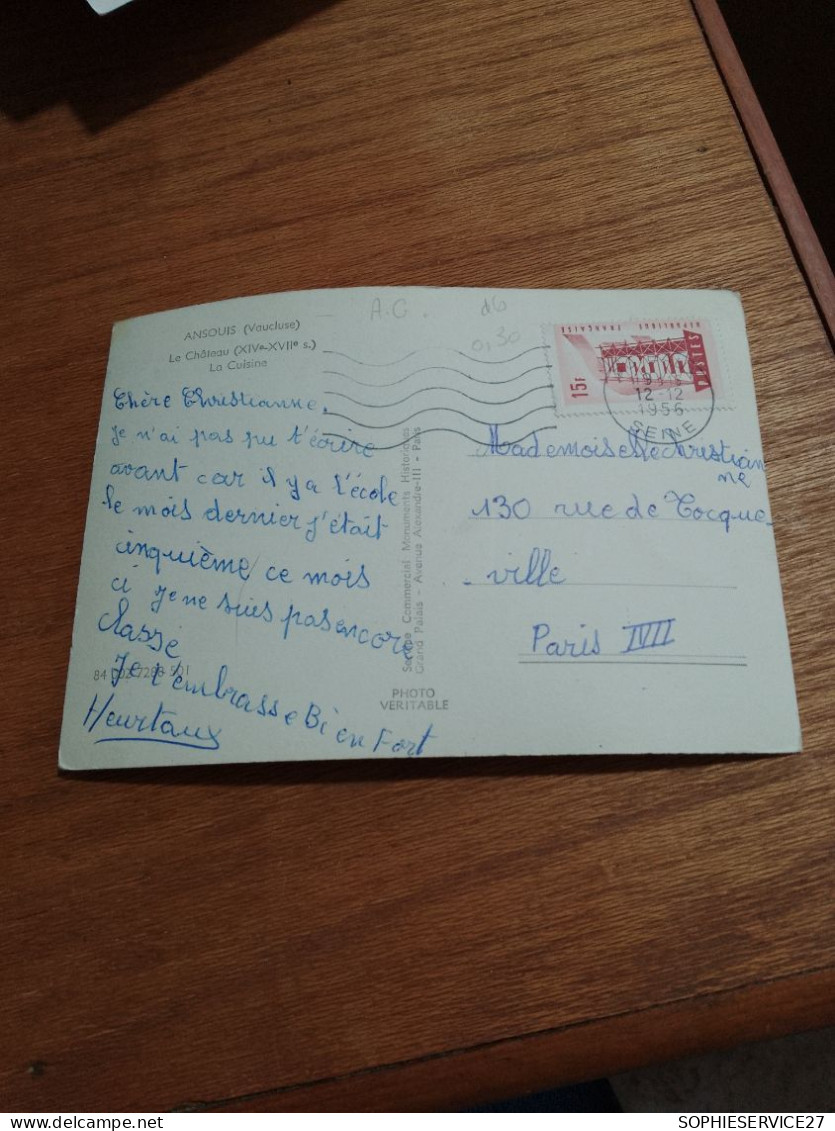 A.G.
0,30
ANSOUIS (Vaucluse)
Le Château (XIVe-XVIIe s.)
La Cuisine
Chère Christianne.
Je n'ai pas pu t'écrire
avant car il y a l'école
le mois dernier j'était
cinquième ce mois
ci je ne suis pas encore
classé
Je t'embrasse Bien Fort
Heurtaux
PHOTO
VERITABLE
Service Commercial Monuments Historiques
Grand Palais - Avenue Alexandre-III - Paris
REPUBLIQUE FRANÇAISE
15F
POSTES
12-12
1956
SEINE
Mademoiselle Christian
ne
130 rue de Tocque
-ville
Paris XVII
SOPHIESERVICE27